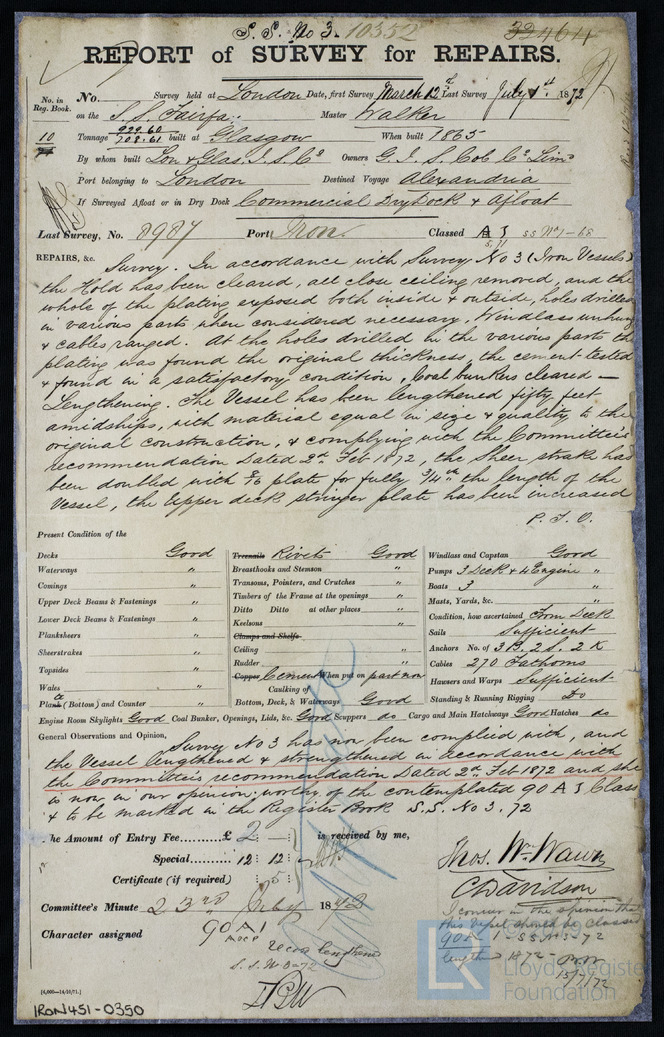 S. S. No 3. 10352 32464
REPORT of SURVEY for REPAIRS.
No. in Reg. Book. No. Survey held at London Date, first Survey March 12th Last Survey July 1st 1872
on the S.S. Fairfa Master Walker
10 Tonnage 929.60 708.61 built at Glasgow When built 1865
By whom built Lon & Glas. I. S. Co Owners G. I. S. Col Co Lim
Port belonging to London Destined Voyage Alexandria
If Surveyed Afloat or in Dry Dock Commercial Dry Dock & Afloat
Last Survey, No. 8987 Port Iron. Classed A 1 SS No 1-68
5,71
REPAIRS, &c. Survey. In accordance with Survey No 3 (Iron Vessels)
the Hold has been cleared, all close ceiling removed, and the
whole of the plating exposed both inside & outside, holes drilled
in various parts when considered necessary, Windlass unhung
& cables ranged. At the holes drilled in the various parts the
plating was found the original thickness, the cement tested
& found in a satisfactory condition, Coal bunkers cleared —
Lengthening. The Vessel has been lengthened fifty feet
amidships, with material equal in size & quality to the
original construction, & complying with the Committee's
recommendation Dated 2nd Feb 1872, the Sheer strake has
been doubled with plate for fully 3/4th the length of the
Vessel, the Upper deck stringer plate has been increased
P. T. O.
Present Condition of the
Decks Good Treenails Rivets Good Windlass and Capstan Good
Waterways " Breasthooks and Stemson " Pumps 3 Deck & 4 Engine "
Comings " Transoms, Pointers, and Crutches " Boats 3 "
Upper Deck Beams & Fastenings " Timbers of the Frame at the openings " Masts, Yards, &c. "
Lower Deck Beams & Fastenings " Ditto Ditto at other places " Condition, how ascertained From Deck
Planksheers " Keelsons " Sails Sufficient
Sheerstrakes " Clamps and Shelfs Anchors No. of 3 B. 2 S. 2 K
Topsides " Ceiling " Cables 270 Fathoms
Wales " Rudder " Hawsers and Warps Sufficient
Plank (Bottom) and Counter " Copper Cement When put on part now Standing & Running Rigging Do
Caulking of
Bottom, Deck, & Waterways Good
Engine Room Skylights Good Coal Bunker, Openings, Lids, &c. Good Scuppers do Cargo and Main Hatchways Good Hatches do
General Observations and Opinion, Survey No 3 has now been complied with, and
the Vessel lengthened & strengthened in accordance with
the Committee's recommendation Dated 2nd Feb 1872 and she
is now in our opinion worthy of the contemplated 90 A 1 Class
& to be marked in the Register Book S.S. No 3. 72
he Amount of Entry Fee £ 2 : — : is received by me,
Special 12 : 12 :
Certificate (if required) : 5 :
Thos. Wm Wawn
C Davidson
Committee's Minute 23rd July 1872
Character assigned 90 A 1
lengthened
S. S. No 3-72
I concur in the opinion that
this vessel should be classed
90 A 1 SS No 3-72
lengthd 1872
15/7/72
[6,000—14/10/71.]
IRON451-0350
LR Lloyd's Register
Foundation